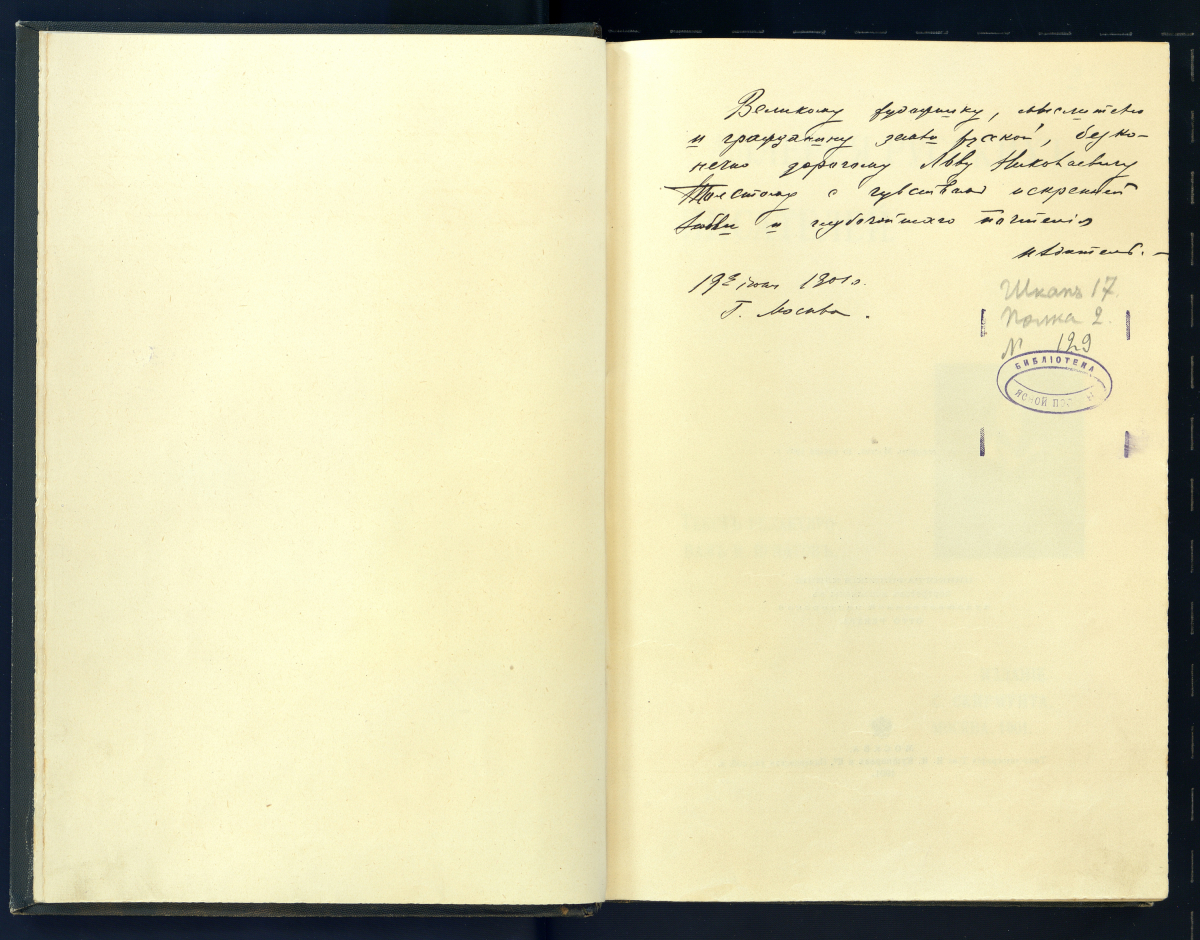 Великому художнику, мыслителю
и гражданину земли русской, беско-
нечно дорогому Льву Николаевичу
Толстому с чувствами искренней
любви и глубочайшаго почтенія
издатель. –
19 іюля 1901 г.
Г. Москва.
Шкапъ 17.
Полка 2.
N 129
БИБЛІОТЕКА
ЯСНОЙ